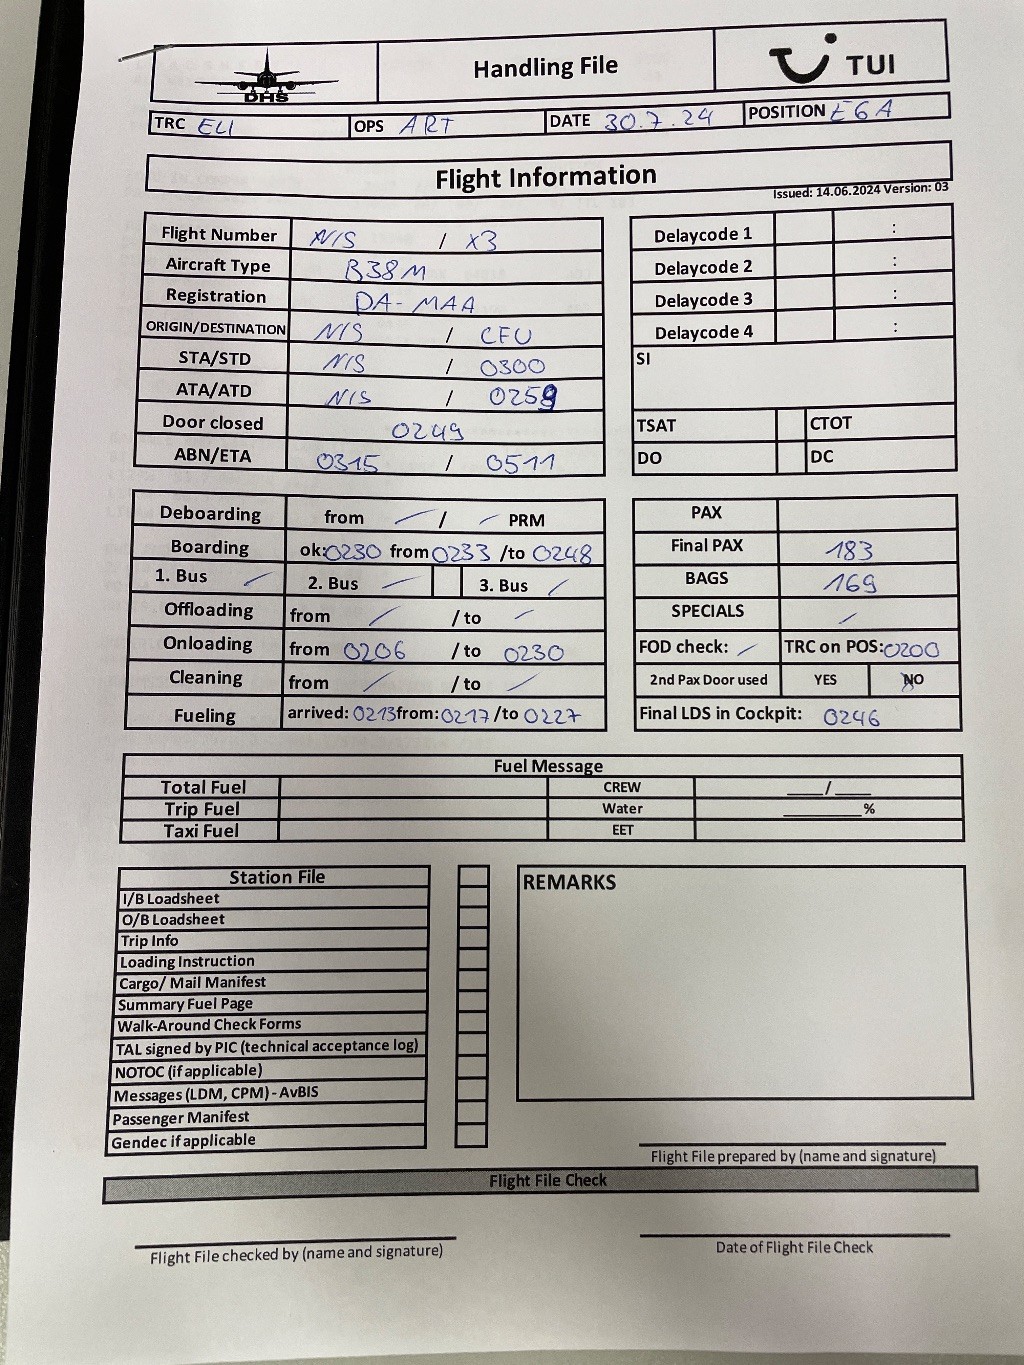 DHS
Handling File
TUI
TRC ELI OPS ART DATE 30.7.24 POSITION E6A
Flight Information
Issued: 14.06.2024 Version: 03
Flight Number NIS / X3
Aircraft Type B38M
Registration DA-MAA
ORIGIN/DESTINATION NIS / CFU
STA/STD NIS / 0300
ATA/ATD NIS / 0259
Door closed 0249
ABN/ETA 0315 / 0511
Delaycode 1 :
Delaycode 2 :
Delaycode 3 :
Delaycode 4 :
SI
TSAT CTOT
DO DC
Deboarding from / PRM
Boarding ok:0230 from 0233 /to 0248
1. Bus 2. Bus 3. Bus
Offloading from / to
Onloading from 0206 / to 0230
Cleaning from / to
Fueling arrived: 0213 from: 0217 /to 0227
PAX
Final PAX 183
BAGS 169
SPECIALS
FOD check: TRC on POS: 0200
2nd Pax Door used YES NO
Final LDS in Cockpit: 0246
Fuel Message
Total Fuel CREW ____/____
Trip Fuel Water ________%
Taxi Fuel EET
Station File
I/B Loadsheet
O/B Loadsheet
Trip Info
Loading Instruction
Cargo/ Mail Manifest
Summary Fuel Page
Walk-Around Check Forms
TAL signed by PIC (technical acceptance log)
NOTOC (if applicable)
Messages (LDM, CPM) - AvBIS
Passenger Manifest
Gendec if applicable
REMARKS
Flight File prepared by (name and signature)
Flight File Check
Flight File checked by (name and signature)
Date of Flight File Check